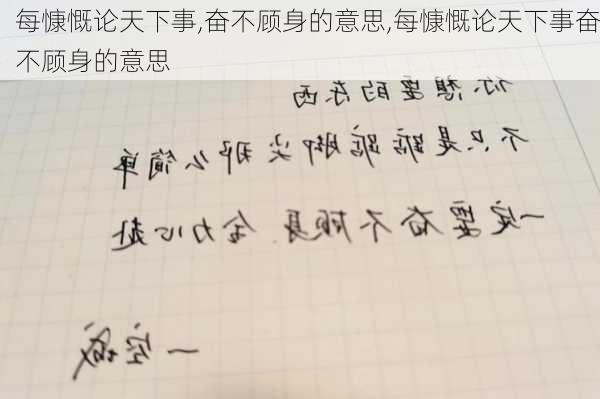 每慷慨论天下事,奋不顾身的意思,每慷慨论天下事奋
不顾身的意思
你想要的东西
不只是踮踮脚尖那么简单
一定要奋不顾身 全力以赴
一定成